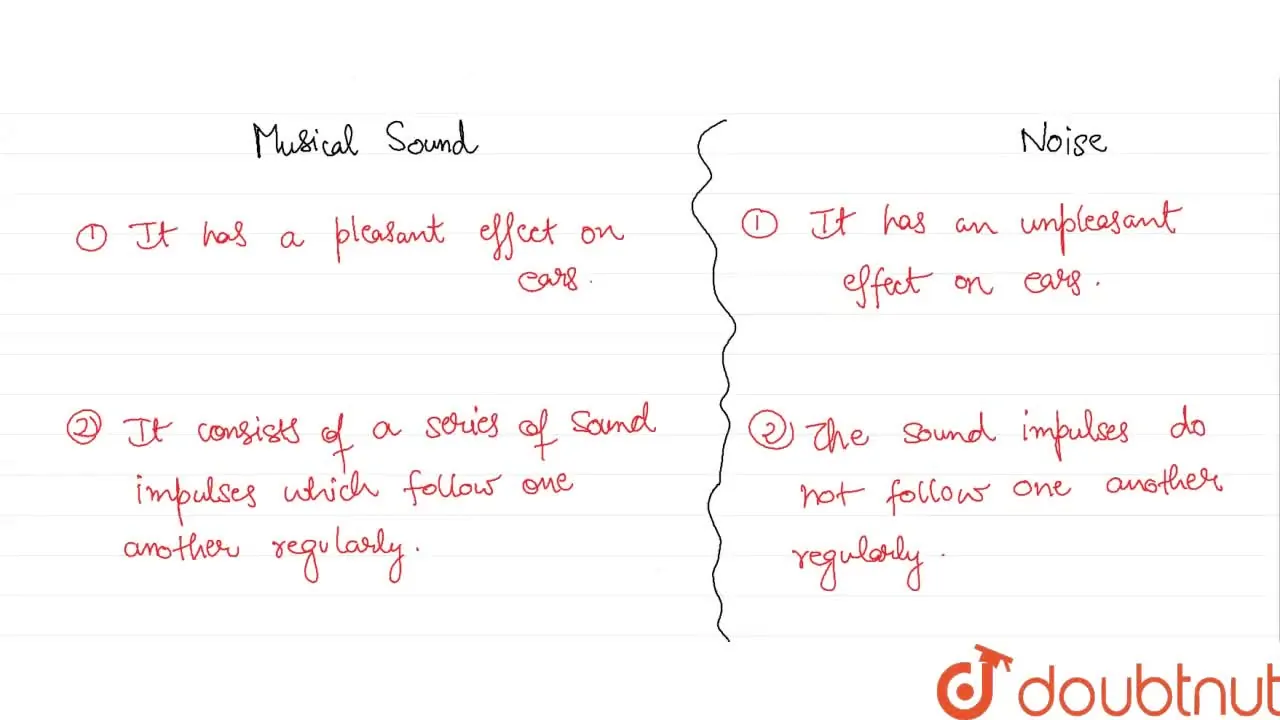 Musical Sound
① It has a pleasant effect on
ears.
② It consists of a series of sound
impulses which follow one
another regularly.
Noise
① It has an unpleasant
effect on ears.
② The sound impulses do
not follow one another
regularly.
doubtnut